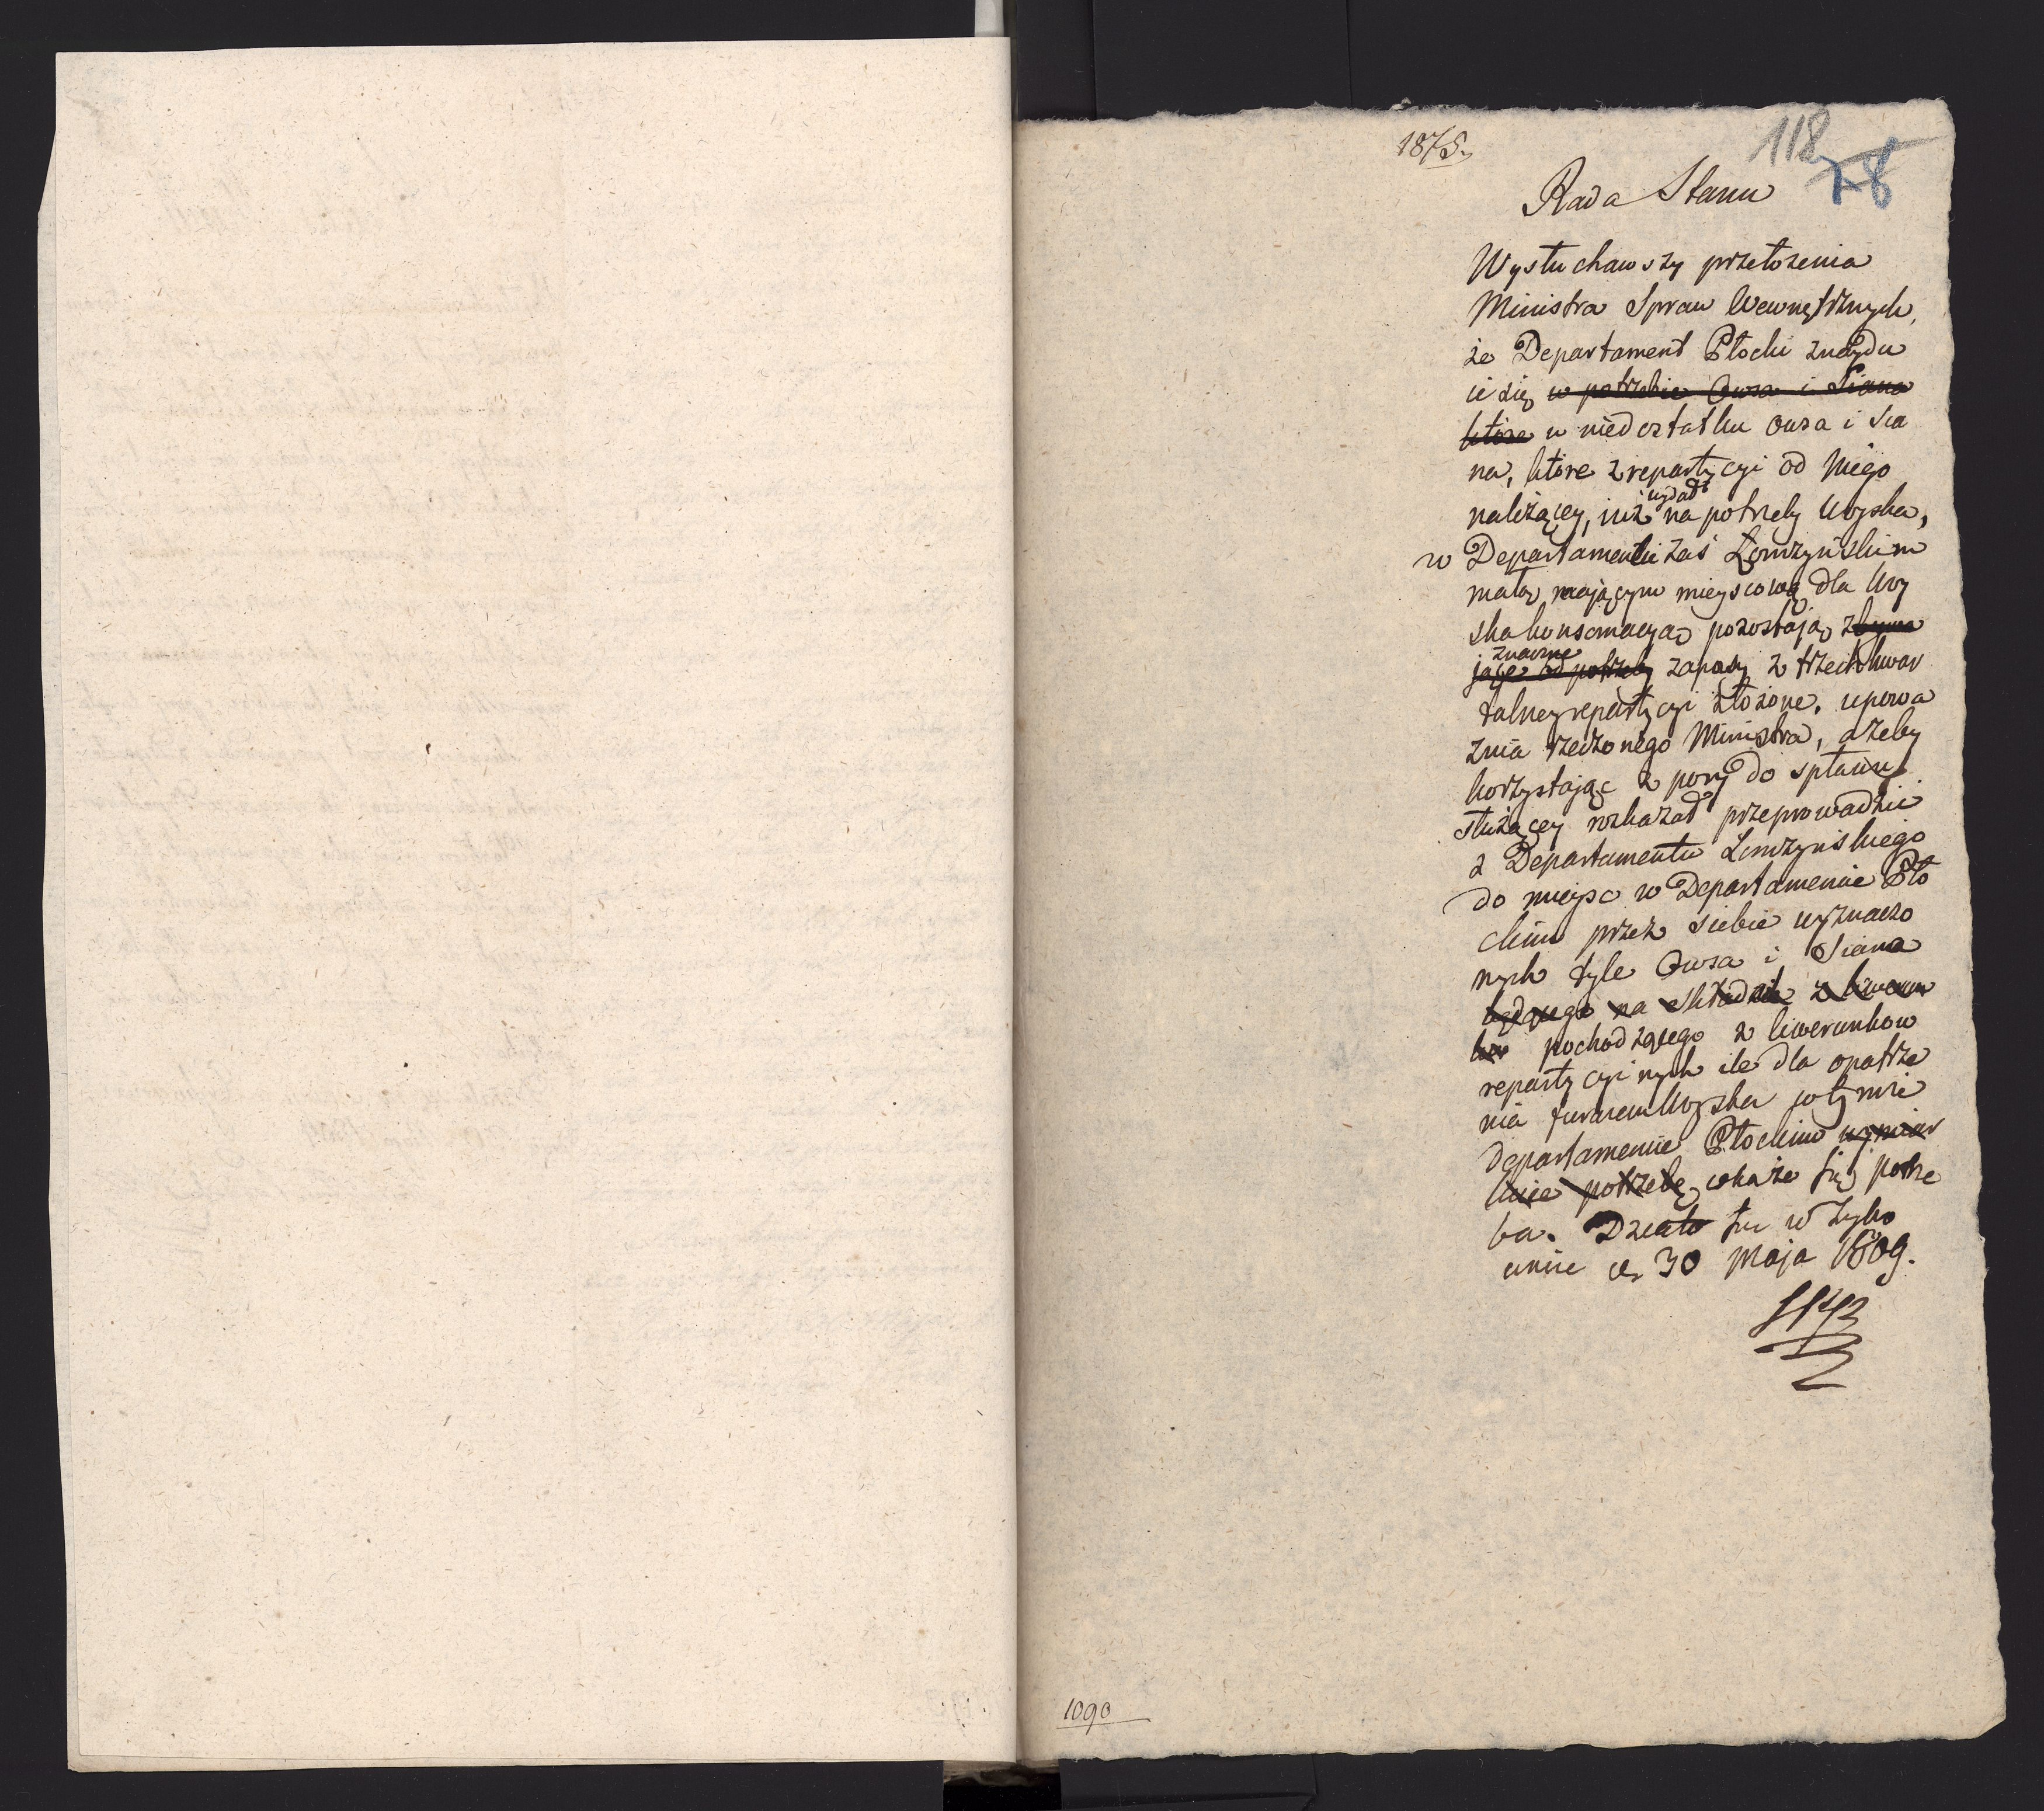 1875.
118
78
Rada Stanu
Wysłuchawszy przełożenia
Ministra Spraw Wewnętrznych,
że Departament Płocki znaydu
ie się w potrzebie Owsa i Siana
które w niedostatku owsa i sia
na, które z repartycyi od niego
należącey, iuż wydał na potrzeby Woyska,
w Departamencie zaś Łomżyńskim
małą maiącym mieyscową dla Woy
ska konsomacyą pozostają zbywa
jące od potrzeby znaczne zapasy z trzechkwar
talney repartycyi złożone, upowa
żnia rzeczonego Ministra, ażeby
korzystając z pory do spławu
służącey rozkazał przeprowadzić
z Departamentu Łomżyńskiego
do mieysc w Departamencie Pło
ckim przez siebie wyznaczo
nych tyle Owsa i Siana
będącego na składzie z liwerun
ków pochodzącego z liwerunkow
repartycyinych ile dla opatrze
nia furażem Woyska w tymże
departamencie Płockim
potrzebę okaże się potrze
ba. Działo się w Tyko
cinie d. 30 Maja 1809.
1090